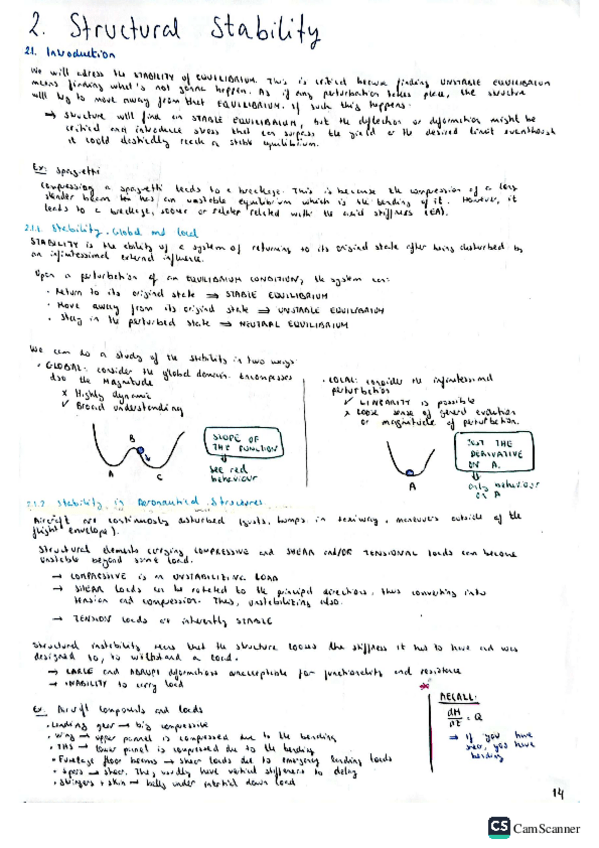 2. Structural Stability
2.1. Introduction
We will adress the STABILITY of EQUILIBRIUM. This is critical because finding UNSTABLE EQUILIBRIUM
means finding what's not gonna happen. As if any perturbation takes place, the structure
will try to move away from that EQUILIBRIUM. If such thing happens:
→ Structure will find an STABLE EQUILIBRIUM, but the deflection or deformation might be
critical and introduce stress that can surpass the yield or the desired limit eventhough
it could reach a stable equilibrium.
Ex: spaghetti
Compressing a spaghetti leads to a breakage. This is because the compression of a long
slender beam has an unstable equilibrium which is the bending of it. However, it
leads to a breakage, sooner or related with the axial stiffness (EA).
2.1.1. Stability. Global and local
STABILITY is the ability of a system of returning to its original state after being disturbed by
an infinitessimal external influence.
Upon a perturbation of an EQUILIBRIUM CONDITION, the system can:
· Return to its original state ⇒ STABLE EQUILIBRIUM
· Move away from its original state ⇒ UNSTABLE EQUILIBRIUM
· Stay in the perturbed state ⇒ NEUTRAL EQUILIBRIUM
We can do a study of the stability in two ways
· GLOBAL: consider the global domain. Encompasses
also the magnitude
x Highly dynamic
✓ Broad understanding
B
A
C
SLOPE OF
THE FUNCTION
See real
behaviour
· LOCAL: consider the infinitessimal
perturbation
✓ LINEARITY is possible
x Loose sense of general evolution
or magnitude of perturbation.
A
JUST THE
DERIVATIVE
ON A.
only behaviour
on A
2.1.2 Stability in Aeronautical Structures
Aircraft are continuosly disturbed (gusts, bumps in taxiway, maneuvers outside of the
flight envelope).
Structural elements carrying COMPRESSIVE and SHEAR and/or TENSIONAL loads can become
unstable beyond some load.
→ COMPRESSIVE is an UNSTABILIZING LOAD
→ SHEAR loads can be rotated to the principal directions, thus converting into
tension and compression. Thus, unstabilizing also.
→ TENSION loads are inherently STABLE
Structural instability means that the structure looses the stiffness it has to have and was
designed to, to withstand a load.
→ LARGE and ABRUPT deformations unacceptable for functionality and resistance
→ INABILITY to carry load
Ex: Aircraft compounds and loads
· Landing gear → big compressive
· Wing → upper pannel is compressed due to the bending
· THS → lower panel is compressed due to the bending
· Fuselage floor beams → shear loads due to emergency landing loads
· Spars → shear. They hardly have vertical stiffeners to delay
· Stringers + skin → belly under inertial down load
RECALL:
dM/dz = Q
⇒ if you have
shear, you have
bending
14
CS CamScanner